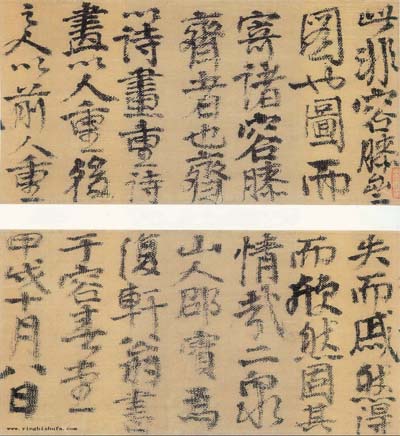 此非容膝齋
圖也圖而
寄諸容膝
齋者也齋
以詩畫重詩
畫以人重後
之人以前人重
失而戚然得
而欣然固其
情哉二泉
山人邵寶為
復軒翁書
于容春堂
甲戌十月八日
www.yingbishufa.com